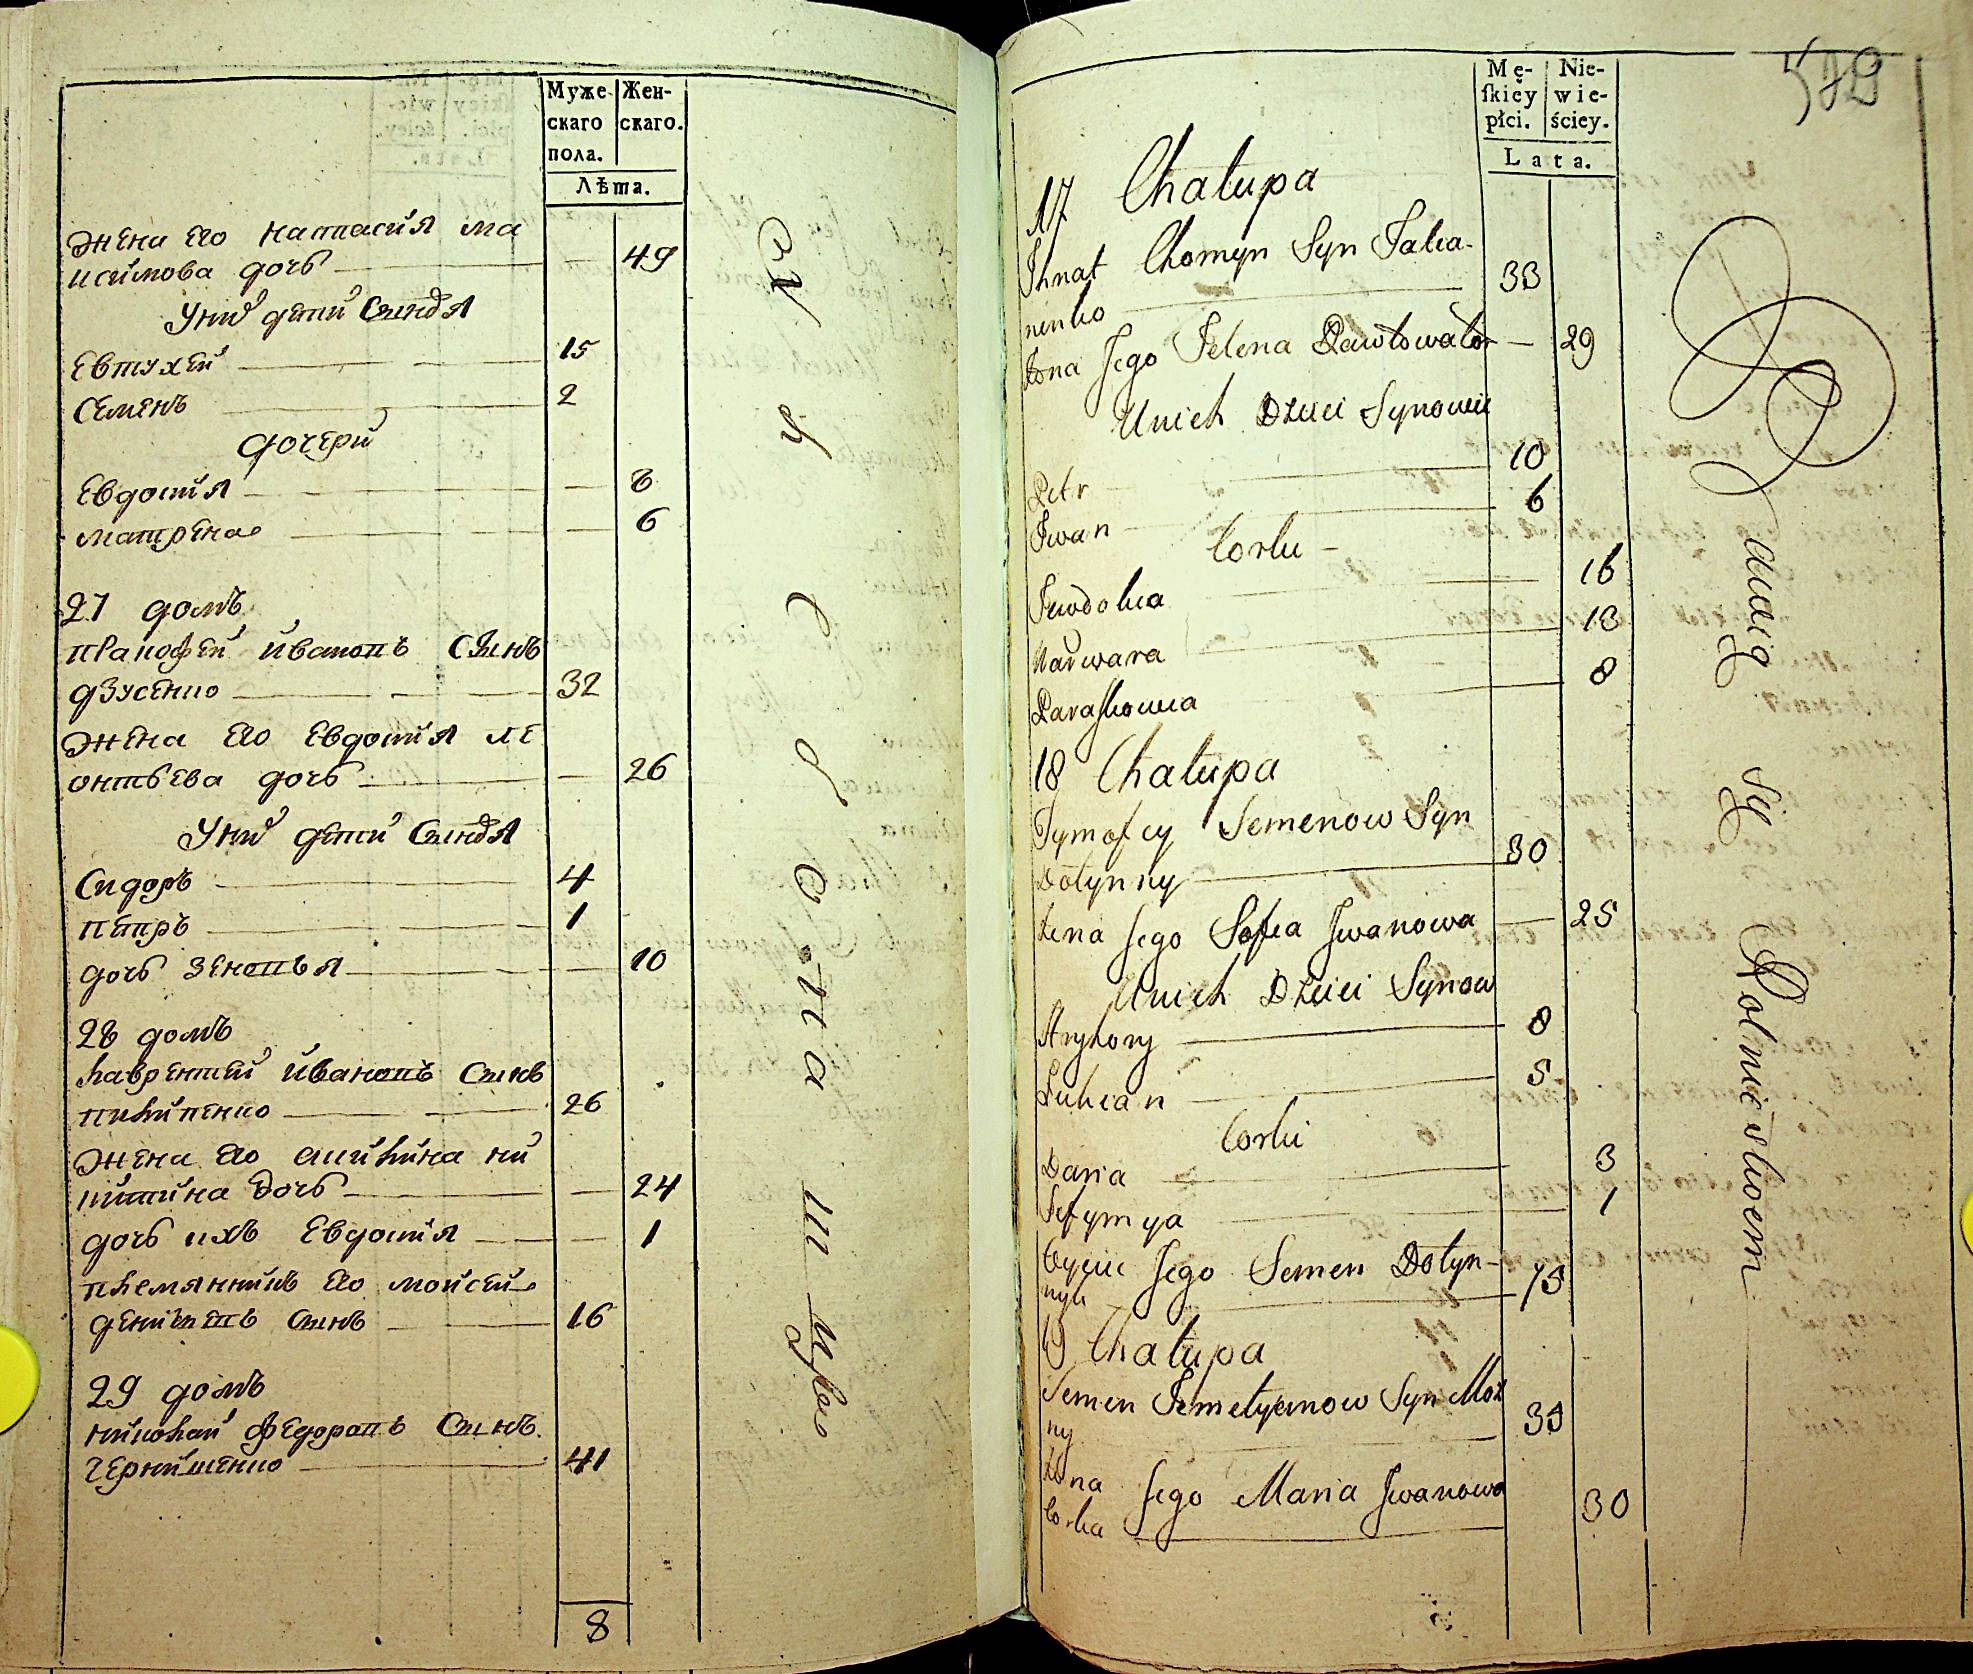 Муже-
скаго
пола.
Жен-
скаго.
Лѣта.
жена его настасия ма
ксимова дочь 49
у них дети сыновя
евтухей 15
семенъ 2
дочери
евдокия 8
матрена 6
27 домъ
пранофей ивановъ сынъ
дзусенко 32
жена его евдокия ле
онтьева дочь 26
у них дети сыновя
сидоръ 4
петръ 1
дочь зеновья 10
28 домъ
лаврентей ивановъ сынъ
пилипенко 26
жена его акилина ни
китина дочь 24
дочь ихъ евдокия 1
племянникъ его моисей
сынъ 16
29 домъ
николай федоровъ сынъ
чернишенко 41
8
Mę-
ſkiey
płci.
Nie-
wie-
ściey.
Lata.
17 Chałupa
Ihnat Chomyn Syn
33
Żona Jego Jelena 29
Unich Dzieci Synowie
Petr 10
Iwan 6
Corki
Iewdokia 16
Warwara 13
Paraskowia 8
18 Chałupa
Tymofey Semenow Syn
Dołynny 30
Żona Jego Sofia Iwanowa 25
Unich Dzieci Synow
Hryhory 8
Lukian 5
Corki
Daria 3
Jefymya 1
Oyciec Jego Semen Dołyn-
nyi 75
19 Chałupa
Semen Syn Moz
ny 35
Żona Jego Maria Iwanowa
Corka 30
Bawią się Rolnictwem